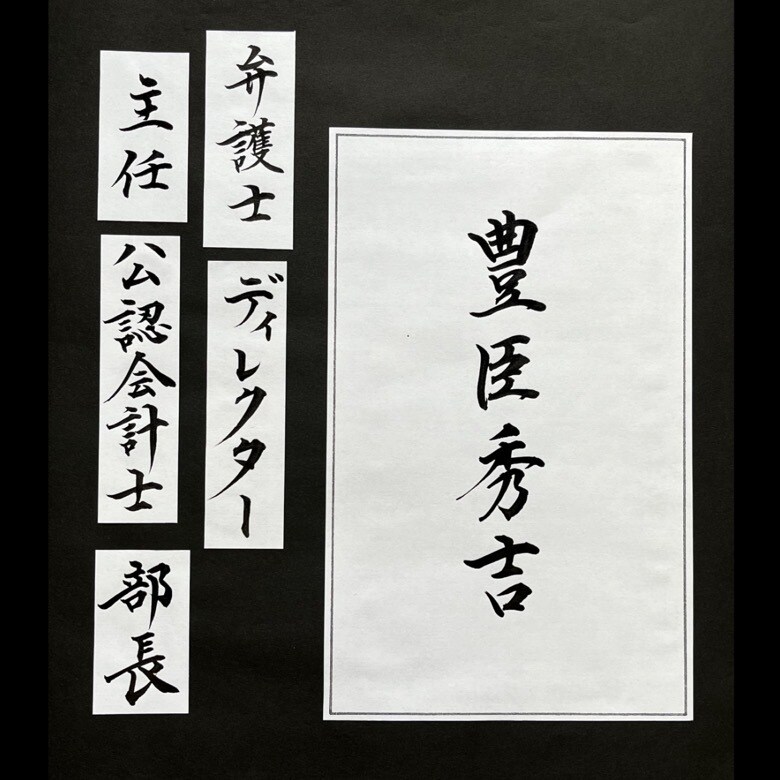 豊臣秀吉
弁護士
ディレクター
主任
公認会計士
部長